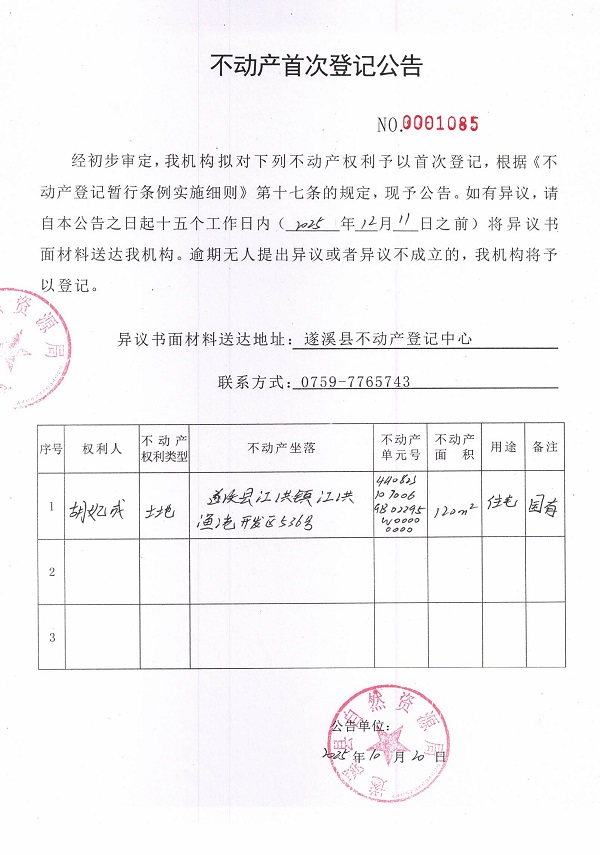 不动产首次登记公告
NO.0001085
经初步审定,我机构拟对下列不动产权利予以首次登记,根据《不
动产登记暂行条例实施细则》第十七条的规定,现予公告。如有异议,请
自本公告之日起十五个工作日内(2025年12月11日之前)将异议书
面材料送达我机构。逾期无人提出异议或者异议不成立的,我机构将予
以登记。
资源局
异议书面材料送达地址:遂溪县不动产登记中心
联系方式:0759-7765743
序号 权利人 不动产权利类型 不动产坐落 不动产单元号 不动产面积 用途 备注
1 胡 成 土地 遂溪县江洪镇江洪渔港开发区536号 440823107006GB02295W00000000 120m² 住宅 国有
2
3
遂溪县自然资源局
公告单位:
2025年10月20日